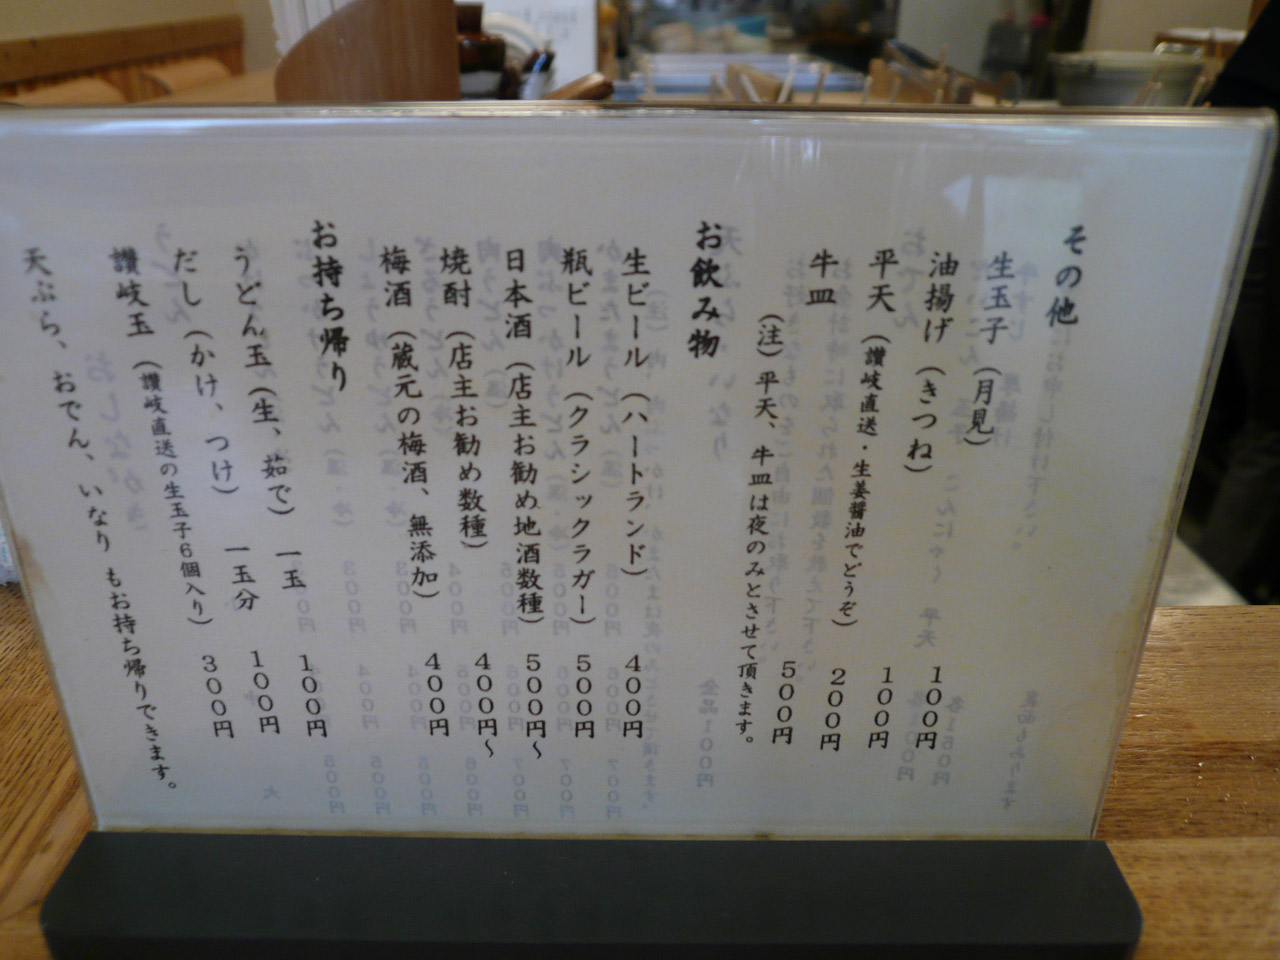 その他
生玉子（月見） 100円
油揚げ（きつね） 100円
平天（讃岐直送・生姜醤油でどうぞ） 200円
牛皿 500円
（注）平天、牛皿は夜のみとさせて頂きます。
お飲み物
生ビール（ハートランド） 400円
瓶ビール（クラシックラガー） 500円
日本酒（店主お勧め地酒数種） 500円～
焼酎（店主お勧め数種） 400円～
梅酒（蔵元の梅酒、無添加） 400円
お持ち帰り
うどん玉（生、茹で） 一玉 100円
だし（かけ、つけ） 一玉分 100円
讃岐玉（讃岐直送の生玉子6個入り） 300円
天ぷら、おでん、いなり もお持ち帰りできます。